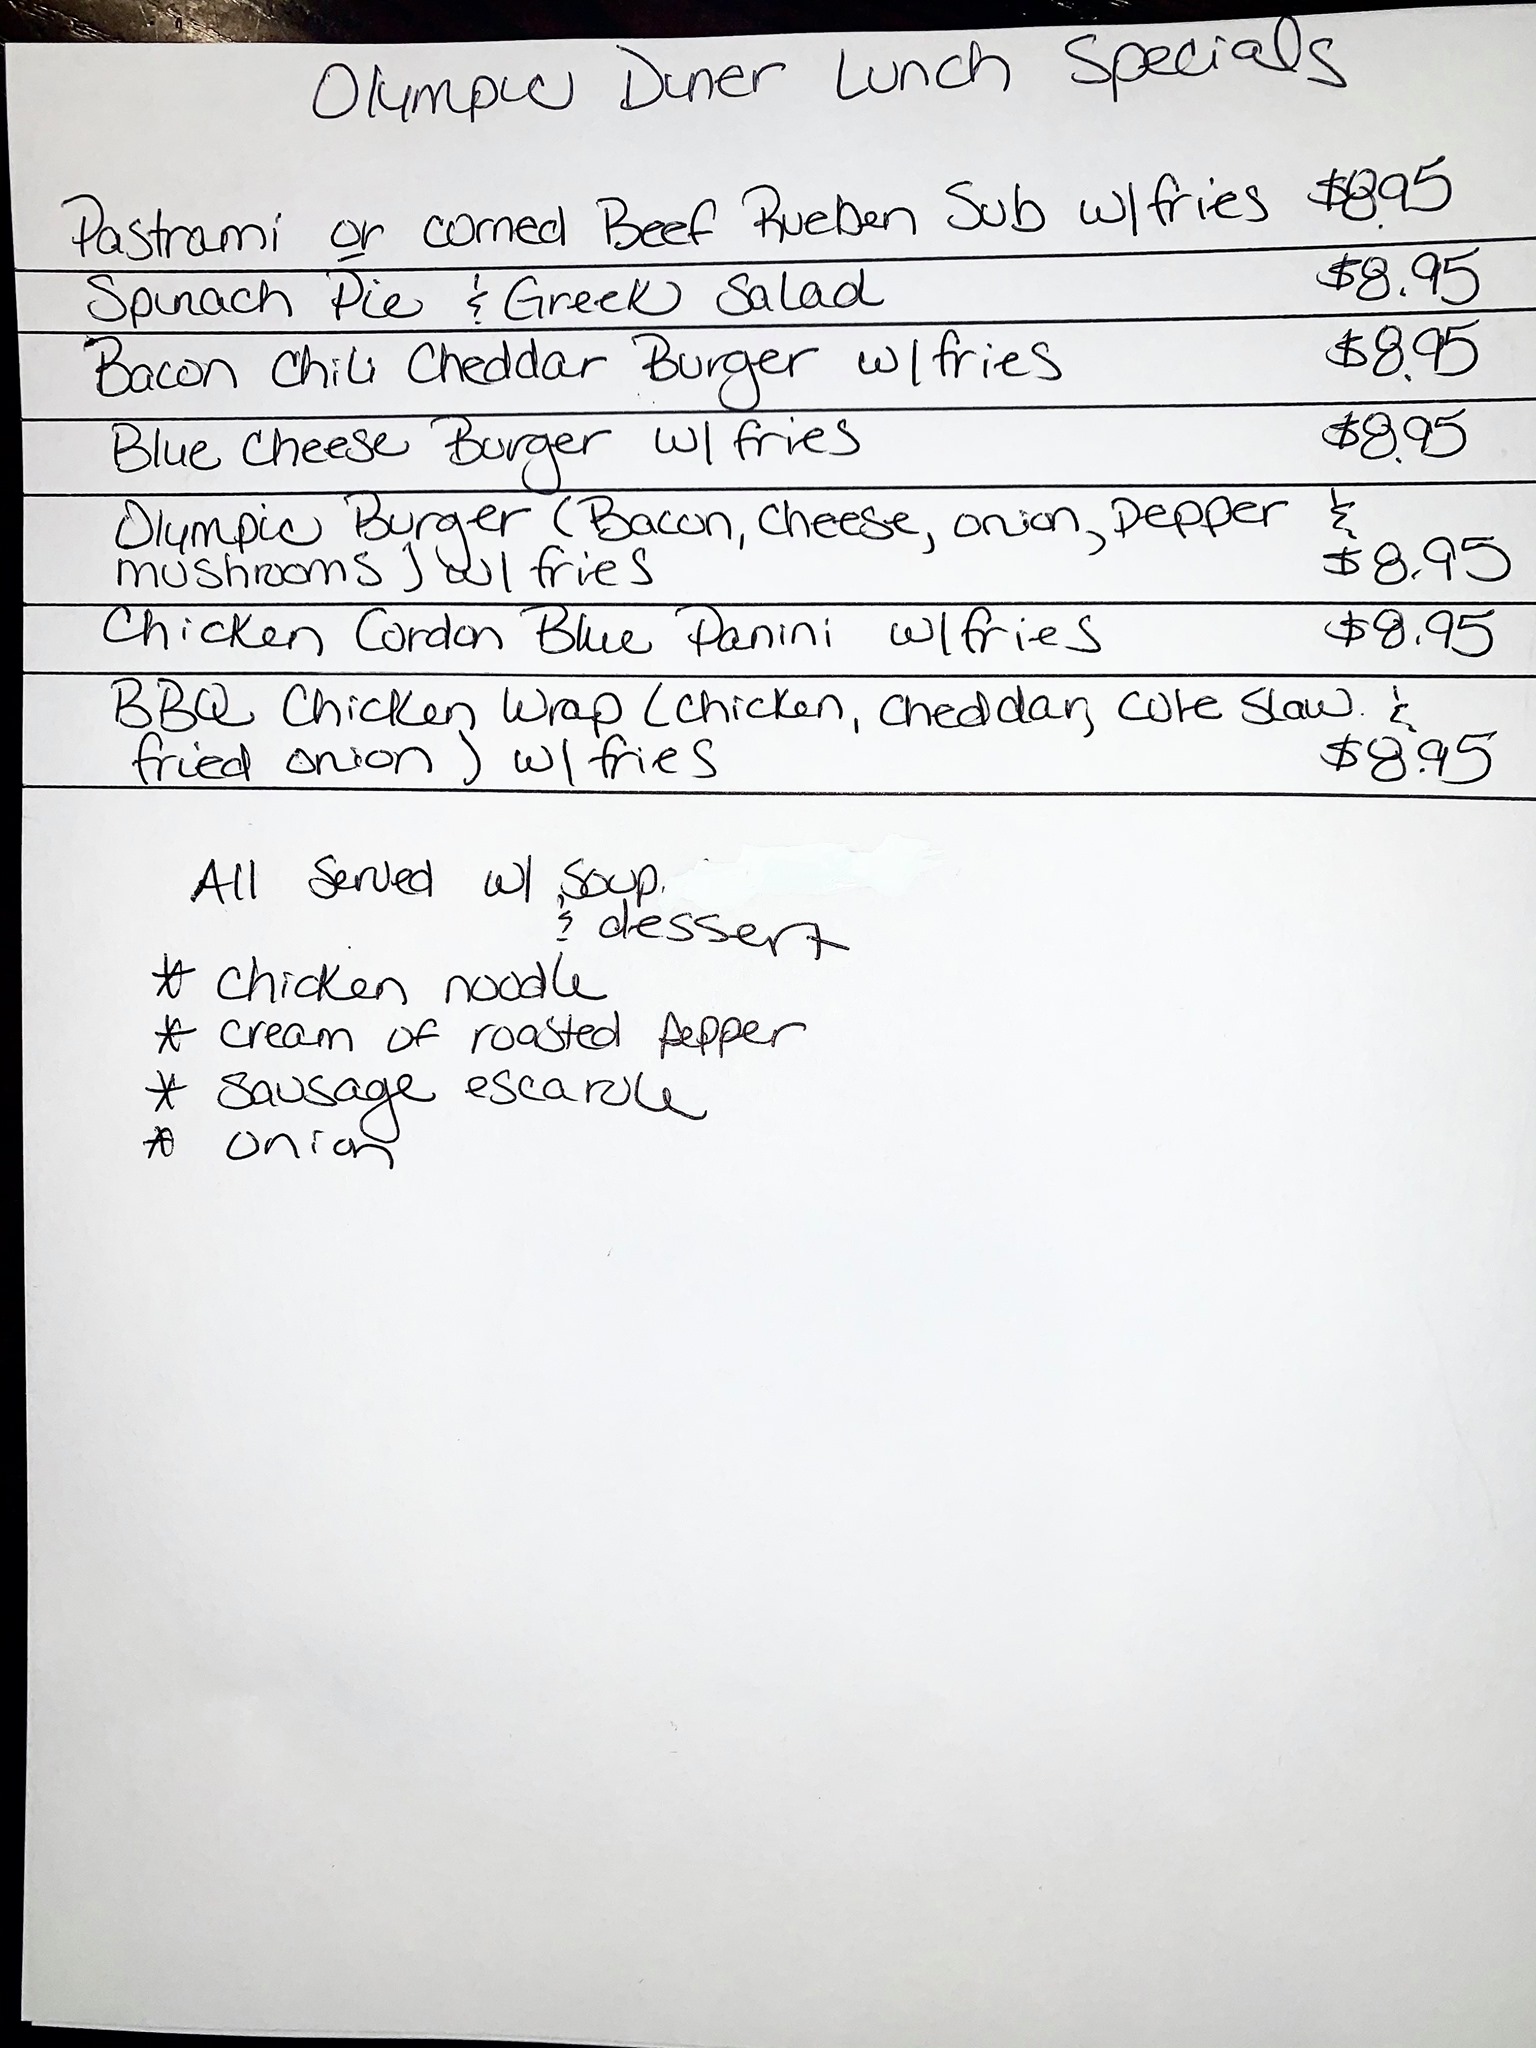 Olympic Diner Lunch Specials
Pastrami or corned Beef Rueben Sub w/fries $8.95
Spinach Pie & Greek Salad $8.95
Bacon Chili Cheddar Burger w/fries $8.95
Blue Cheese Burger w/ fries $8.95
Olympic Burger (Bacon, cheese, onion, pepper &
mushrooms) w/ fries $8.95
Chicken Cordon Blue Panini w/fries $8.95
BBQ Chicken Wrap (chicken, cheddar, cole slaw &
fried onion) w/ fries $8.95
All served w/ soup
& dessert
* chicken noodle
* cream of roasted pepper
* sausage escarole
* onion